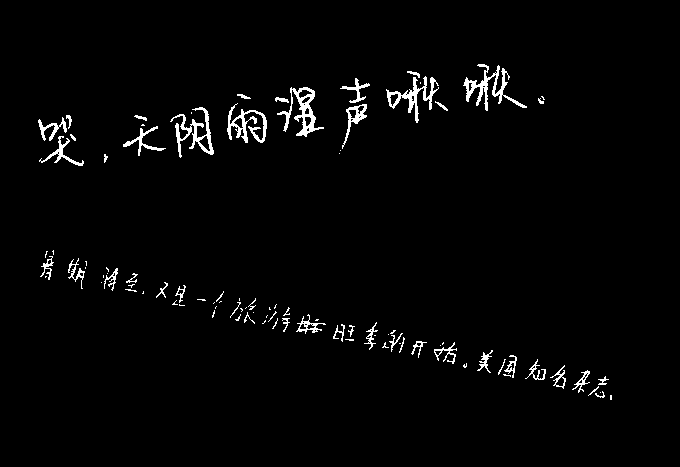 哭,天阴雨湿声啾啾。
暑期将至,又是一个旅游旺季的开始。美国知名杂志、